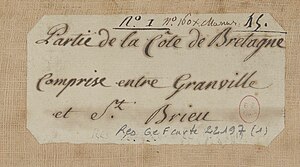 N.º 1 N.º 160 Manus. 15.
Partie de la Côte de Bretagne
Comprise entre Granville
et S.t Brieu
Res Ge F carte 22197 (1)